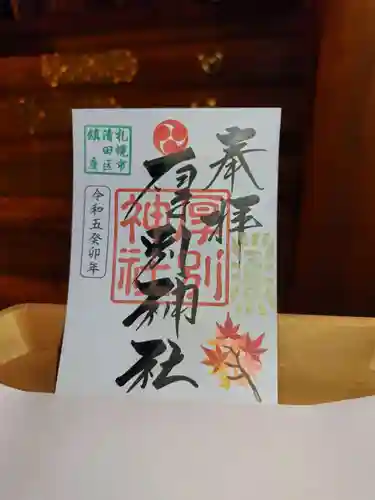 奉拝
厚別神社
厚別
神社
札幌市
清田区
鎮座
令和五癸卯年